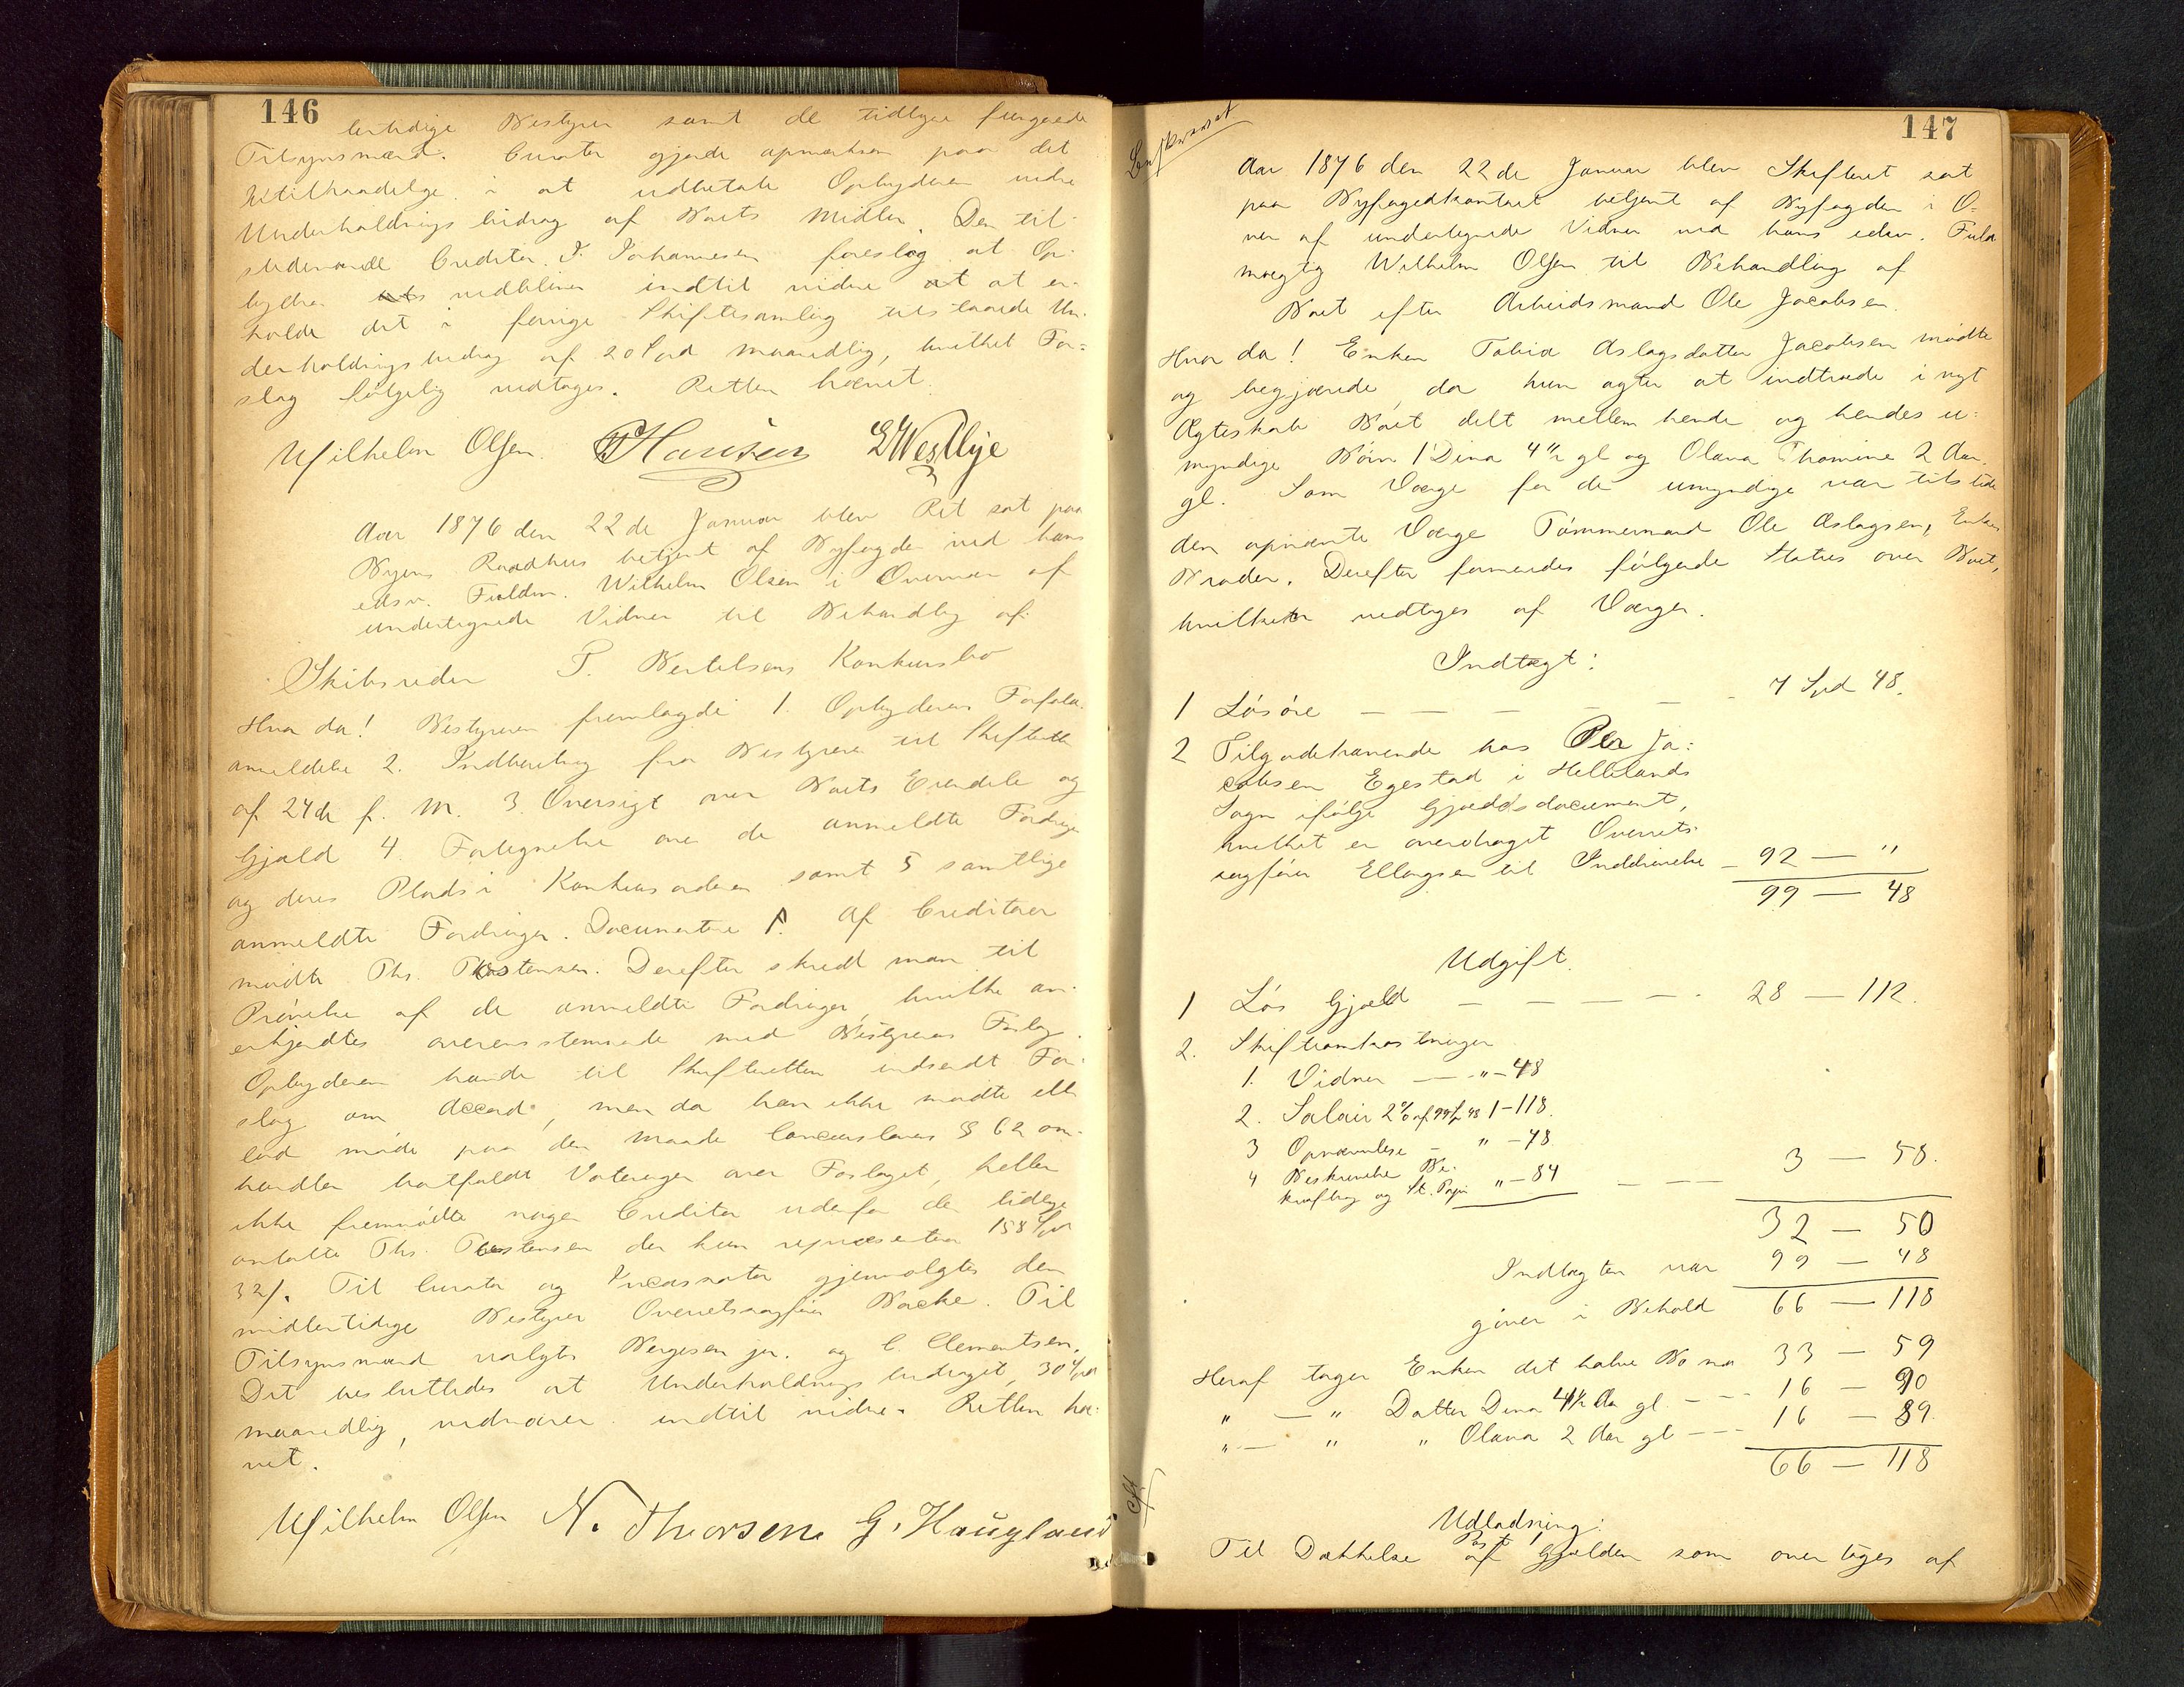 146
lertidige Bestyrer samt de tidligere fungerede
Tilsynsmænd. Curator gjorde opmærksom paa det
utilraadelige i at udbetale Opbyderen videre
Underholdningsbidrag af Boets Midler. Den til-
stedeværende Creditor J. Johannesen foreslog at Op-
byderen vedbliver indtil videre at at er-
holde det i forrige Skiftesamling tilstaaede Un-
derholdningsbidrag af 20 Spd maanedlig, hvilket For-
slag følgelig vedtoges. Retten hævet.
Wilhelm Olsen. Hansen Westbye
Aar 1876 den 22de Januar blev Ret sat paa
Byens Raadhus betjent af Byfogden ved hans
edsv. Fuldm. Wilhelm Olsen i Overvær af
undertegnede Vidner til Behandling af
Skibsreder P. Bertelsens Konkursbo
Hvor da! Bestyreren fremlagde 1. Opbyderens Forfalds-
anmeldelse 2. Indberetning fra Bestyreren til Skifteretten
af 24de f. M. 3. Oversigt over Boets Eiendele og
Gjæld 4. Fortegnelse over de anmeldte Fordringer
og deres Plads i Konkursordenen samt 5 samtlige
anmeldte Fordringer. Documenterne Af Creditorer
mødte Ths. Thorstensen. Derefter skredt man til
Prøvelse af de anmeldte Fordringer, hvilke an-
erkjendtes overensstemmende med Bestyrerens Forslag.
Opbyderen havde til Skifteretten indsendt For-
slag om Accord, men da han ikke mødte eller
lod møde paa den Maade Concurslovens § 62 om-
handler bortfaldt Voteringen over Forslaget, heller
ikke fremmødte nogen Creditor udenfor den tidligere
omtalte Ths. Thorstensen der kun repræsenterer 158 Spd
32 s. Til Curator og Incassator gjenvalgtes den
midlertidige Bestyrer Overretssagfører Backe. Til
Tilsynsmænd valgtes Bergesen jr. og C. Clementsen.
Det besluttedes at Underholdningsbidraget, 30 Spd
maanedlig, vedvarer indtil videre. Retten hæ-
vet.
Wilhelm Olsen N. Thorsen G. Haugland
147
Aar 1876 den 22de Januar blev Skifteret sat
paa Byfogedkontoret betjent af Byfogden i O-
ver af undertegnede Vidner ved hans edsv. Fuld
mægtig Wilhelm Olsen til Behandling af
Boet efter Arbeidsmand Ole Jacobsen.
Hvor da! Enken Tabia Aslagsdatter Jacobsen mødte
og begjærede, da hun agter at indtræde i nyt
Ægteskab Boet delt mellem hende og hendes u-
myndige Børn 1 Dina 4½ gl og Olava Thomine 2 Aar
gl. Som Værge for de umyndige var tilstede
den opnævnte Værge Tømmermand Ole Aslagsen, Enkens
Broder. Derefter formeredes følgende Status over Boet,
hvilken vedtoges af Værgen.
Indtægt:
1 Løsøre — — — — — 7 Spd 48.
2 Tilgodehavende hos Peter Ja-
cobsen Egestad i Hellelands
Sogn ifølge Gjældsdocument,
hvilket er overdraget Overrets-
sagfører Ellingsen til Inddrivelse — 92 — "
99 — 48
Udgift.
1 Løs Gjæld — — — — 28 — 112.
2. Skifteomkostninger
1. Vidner — " — 48
2. Salair 2% af 99 Spd 48 1 — 118.
3 Opnævnelse — " — 48
4 Beskrivelse Be-
kræftning og St. Papir " — 84 — — — 3 — 58.
32 — 50
Indtægten var 99 — 48
giver i Behold 66 — 118
Heraf tager Enken det halve Bo med 33 — 59
" — " Datter Dina 4½ Aar gl. — — 16 — 90
" — " " Olava 2 Aar gl — — 16 — 89.
66 — 118
Udlodning:
Post 1
Til Dækkelse af Gjælden som overtages af